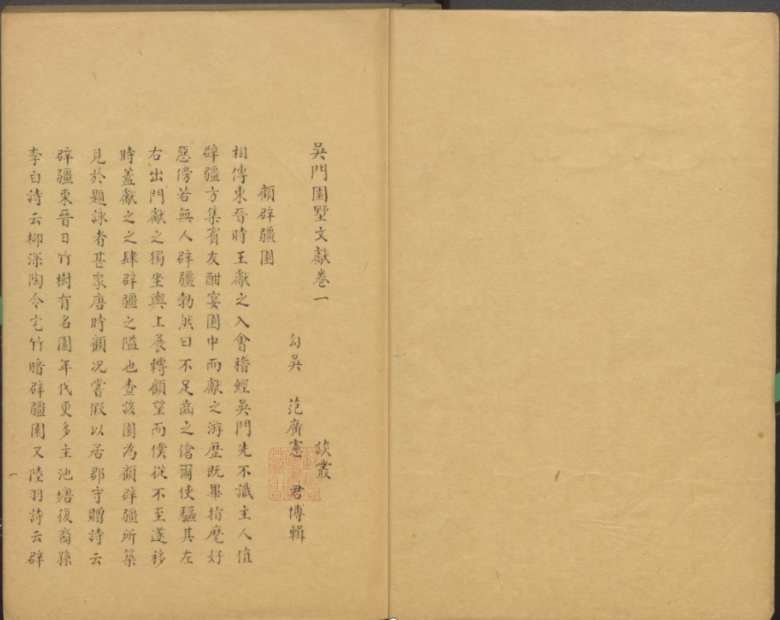 吳門園墅文獻卷一
談叢
勾吳 范廣憲 君博輯
顧辟疆園
相傳東晉時王獻之入會稽經吳門先不識主人值
辟疆方集賓友酣宴園中而獻之游歷既畢指麾好
惡傍若無人辟疆勃然曰不足齒之傖爾使驅其左
右出門獻之獨坐輿上展轉顧望而僕從不至遂移
時蓋獻之之肆辟疆之隘也查該園為顧辟疆所築
見於題詠者甚衆唐時顧况嘗假以居郡守贈詩云
辟疆東晉日竹樹有名園年代更多主池塘復裔孫
李白詩云柳深陶令宅竹暗辟疆園又陸羽詩云辟
一